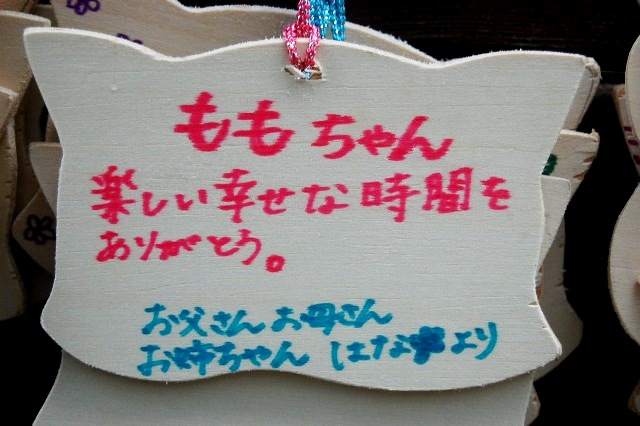 ももちゃん
楽しい幸せな時間を
ありがとう。
お父さんお母さん
お姉ちゃん はな より